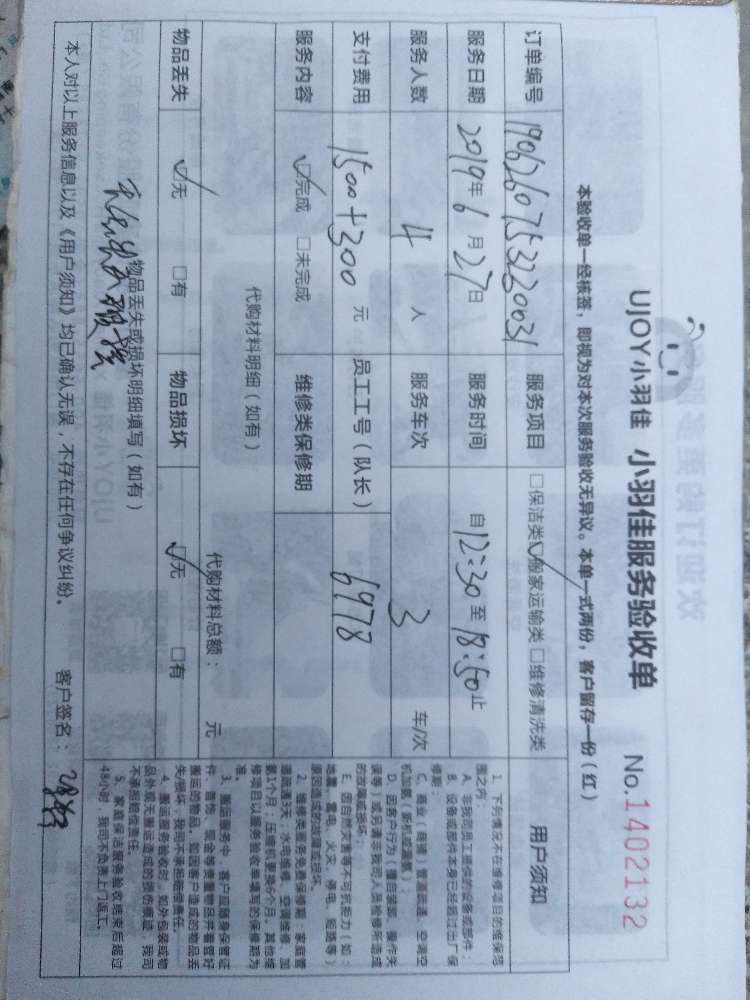 UJOY小羽佳 小羽佳服务验收单 No.1402132
本验收单一经核签，即视为对本次服务验收无异议。本单一式两份，客户留存一份（红）
订单编号 19062607532220031 服务项目 □保洁类 ☑搬家运输类 □维修清洗类
服务日期 2019年6月27日 服务时间 自12:30至18:50止
服务人数 4 人 服务车次 3 车/次
支付费用 1500+300 元 员工工号（队长） 6978
服务内容 ☑完成 □未完成 维修类保修期
代购材料明细（如有） 代购材料总额： 元
物品丢失 ☑无 □有 物品损坏 ☑无 □有
物品丢失或损坏明细填写（如有）
本人对以上服务信息以及《用户须知》均已确认无误，不存在任何争议纠纷。 客户签名：
用户须知
1、下列情况不在维修项目的维保范
围之内：
A、非我司员工提供的设备或部件；
B、设备或部件本身已经超过出厂保
修期；
C、商业（商铺）管道疏通、空调空
D、因客户行为（擅自装卸、操作失
误等）或另请非我司人员检修所造成
的故障或损坏；
E、因自然灾害等不可抗拒力（如：
地震、雷电、火灾、停电、短路等）
原因造成的故障或损坏。
2、维修类服务免费保修期：家庭管
道疏通3天，水电维修、空调维修、加
氨1个月；压缩机更换6个月。其他维
修项目以服务验收单填写的保修期为
准。
3、搬运服务中，客户应随身保管证
件、首饰、现金等贵重物品并看管好
搬运的物品。如因客户造成的物品丢
失/损坏，我司不承担赔偿责任。
4、搬运服务验收时，如外包装或物
品外观无搬运造成的损伤痕迹，我司
不承担赔偿责任。
5、家庭保洁服务验收结束后超过
48小时，我司不负责上门返工。